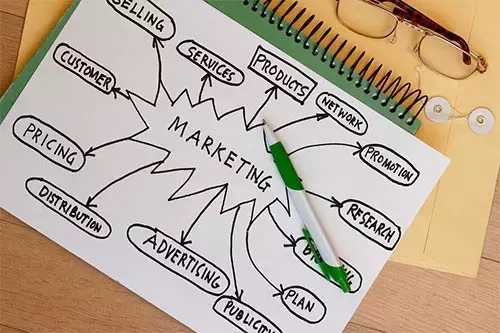 SELLING
SERVICES
PRODUCTS
NETWORK
CUSTOMER
MARKETING
PROMOTION
PRICING
RESEARCH
DISTRIBUTION
ADVERTISING
PLAN